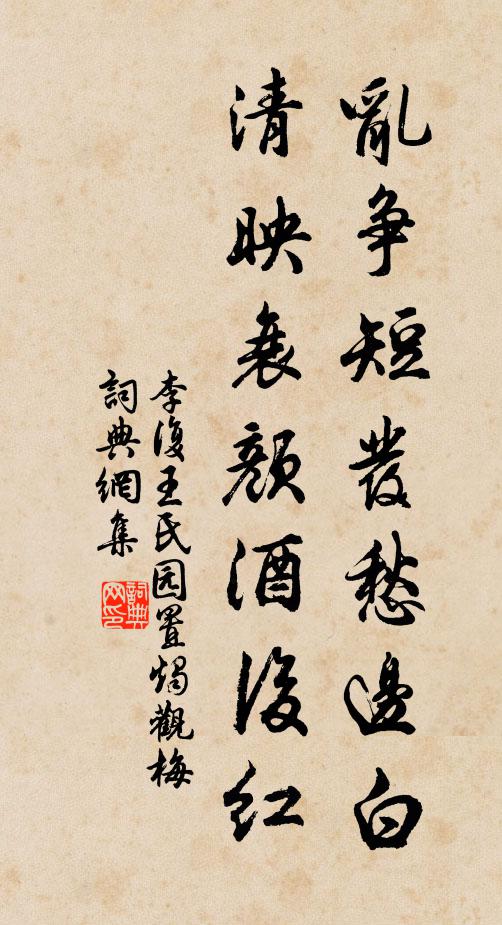 亂争短發愁邊白
清映衰顏酒後紅
李復王氏园置燭觀梅
詞典網集
詞典
网印